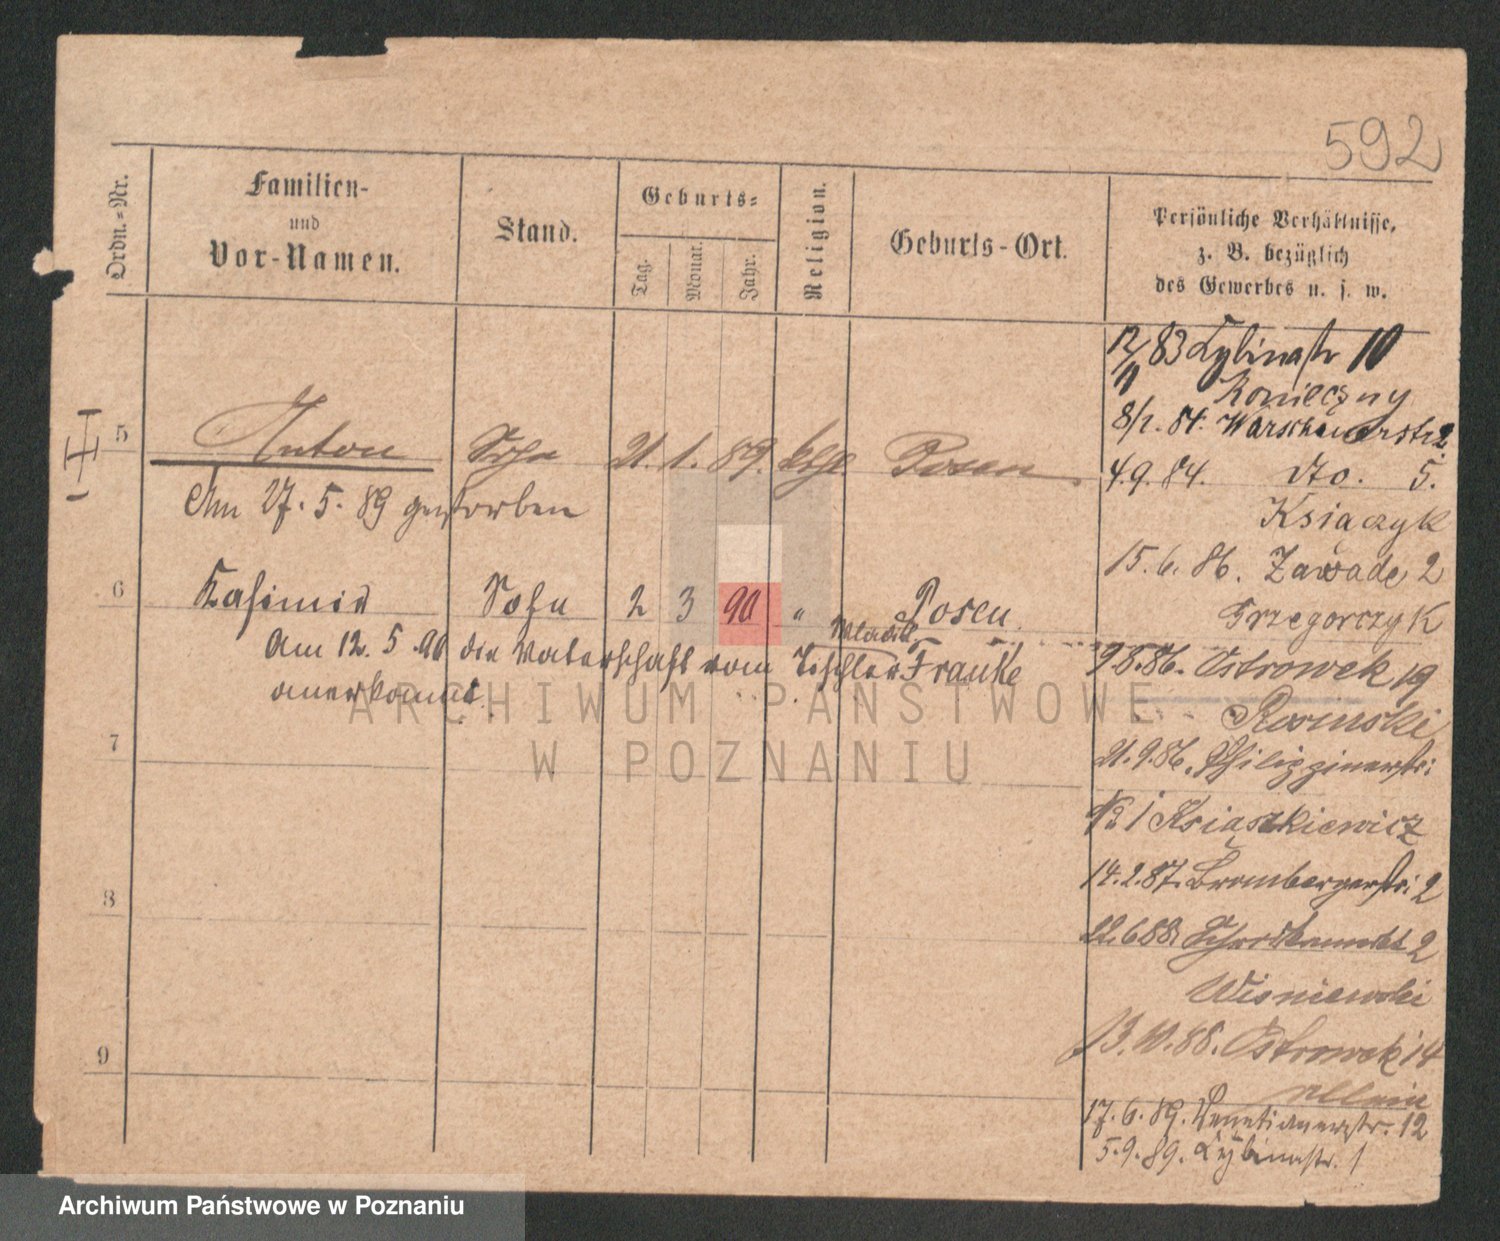 592
Ordn.-Nr.
Familien-
und
Vor-Namen.
Stand.
Geburts-
Tag.
Monat.
Jahr.
Religion.
Geburts-Ort.
Persönliche Verhältnisse,
z. B. bezüglich
des Gewerbes u. s. w.
5 Anton Sohn 21. 1. 89. kth. Posen
Am 27. 5. 89 gestorben
6 Kasimir Sohn 2 3 90 " Posen
Am 12. 5. 90 die Vaterschaft vom Tischler Franke
anerkannt.
7
8
9
12/11 83 Zybinastr 10
Konieczny
8/1. 84. Warschauerstr 2.
4.9.84. dto. 5.
Książczyk
15.6.86. Zawade 2
Grzegorczyk
9.8.86. Ostrowek 19
Rosinski
21.9.86. Philippinerstr:
№ 1 Ksiaszkiewicz
14.2.87. Brombergerstr: 2
22.6.88 Schrodkamarkt 2
Wisniewski
13.10.88. Ostrowek 14
allein
17.6.89. Venetianerstr. 12
5.9.89. Zybinastr. 1
ARCHIWUM PAŃSTWOWE
W POZNANIU
Archiwum Państwowe w Poznaniu